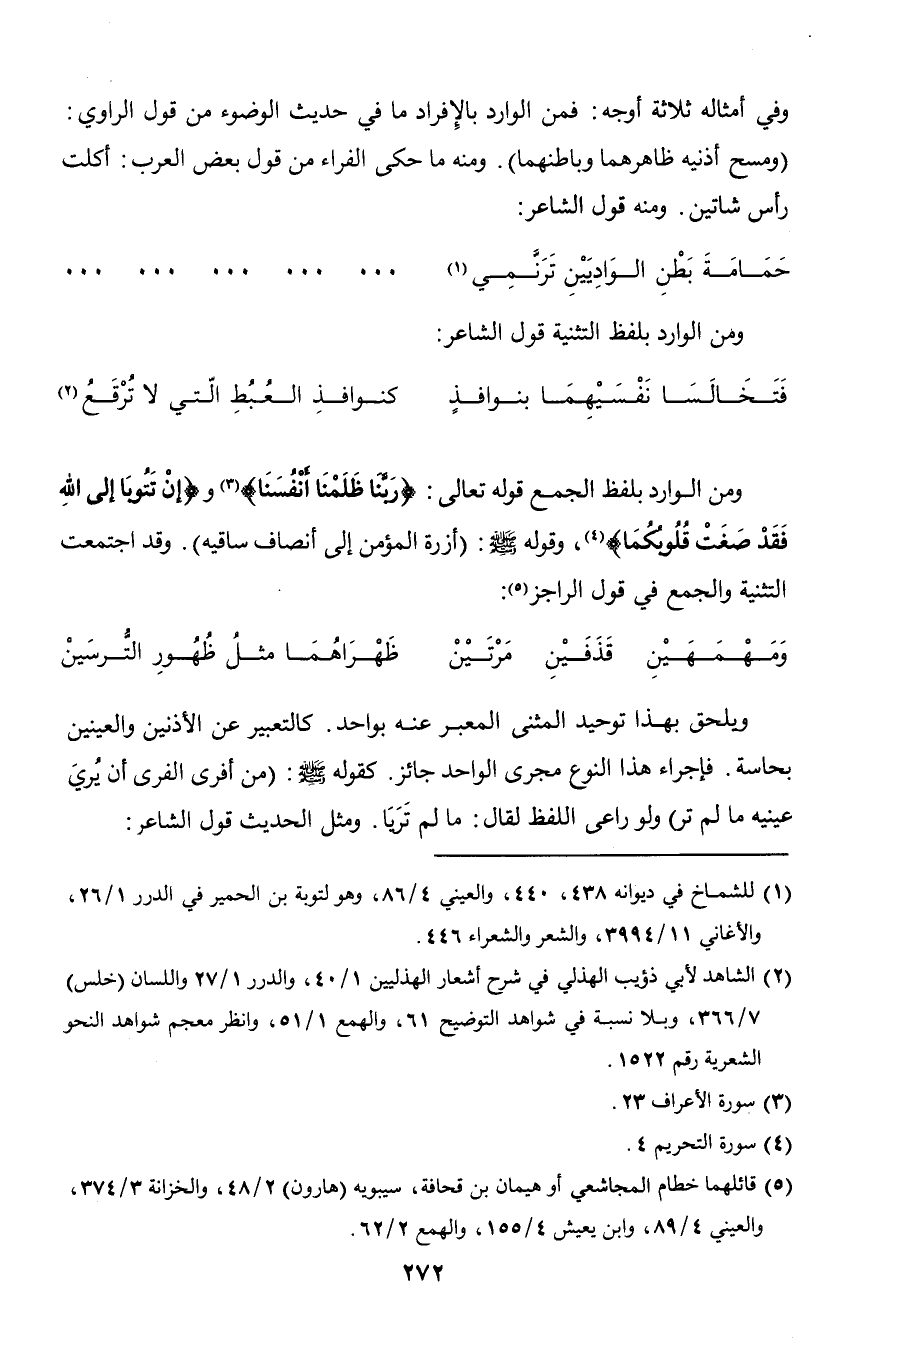 وفي أمثاله ثلاثة أوجه: فمن الوارد بالإِفراد ما في حديث الوضوء من قول الراوي:
(ومسح أذنيه ظاهرهما وباطنهما). ومنه ما حكى الفراء من قول بعض العرب: أكلت
رأس شاتين. ومنه قول الشاعر:
حَمَـامَـةَ بَطْنِ الـوَادِيَيْنِ تَرَنَّمِـي(١) ... ... ... ... ...
ومن الوارد بلفظ التثنية قول الشاعر:
فَتَـخَـالَسَـا نَفْـسَيْهِمَـا بنـوافـذٍ كنـوافـذِ العُبُطِ الّتـي لا تُرْقَـعُ(٢)
ومن الـوارد بلفظ الجمـع قوله تعالى: ﴿رَبَّنَا ظَلَمْنَا أَنْفُسَنَا﴾(٣) و ﴿إنْ تَتُوبَا إلى اللهِ
فَقَدْ صَغَتْ قُلُوبُكُمَا﴾(٤)، وقوله ﷺ: (أزرة المؤمن إلى أنصاف ساقيه). وقد اجتمعت
التثنية والجمع في قول الراجز(٥):
وَمَـهْـمَـهَـيْنِ قَذَفَـيْنِ مَرْتَـيْنْ ظَهْـرَاهُـمَـا مثـلُ ظُهُـورِ التُّـرسَينْ
ويلحق بهـذا توحيد المثنى المعبر عنـه بواحد. كالتعبير عن الأذنين والعينين
بحاسة. فإجراء هذا النوع مجرى الواحد جائز. كقوله ﷺ: (من أفرى الفرى أن يُريَ
عينيه ما لم تر) ولو راعى اللفظ لقال: ما لم تَرَيَا. ومثل الحديث قول الشاعر:
(١) للشمـاخ في ديوانه ٤٣٨، ٤٤٠، والعيني ٨٦/٤، وهو لتوبة بن الحمير في الدرر ٢٦/١،
والأغاني ٣٩٩٤/١١، والشعر والشعراء ٤٤٦.
(٢) الشاهد لأبي ذؤيب الهذلي في شرح أشعار الهذليين ٤٠/١، والدرر ٢٧/١ واللسان (خلس)
٣٦٦/٧، وبـلا نسبـة في شواهد التوضيح ٦١، والهمع ٥١/١، وانظر معجم شواهد النحو
الشعرية رقم ١٥٢٢.
(٣) سورة الأعراف ٢٣.
(٤) سورة التحريم ٤.
(٥) قائلهما خطام المجاشعي أو هيمان بن قحافة، سيبويه (هارون) ٤٨/٢، والخزانة ٣٧٤/٣،
والعيني ٨٩/٤، وابن يعيش ١٥٥/٤، والهمع ٦٢/٢.
٢٧٢